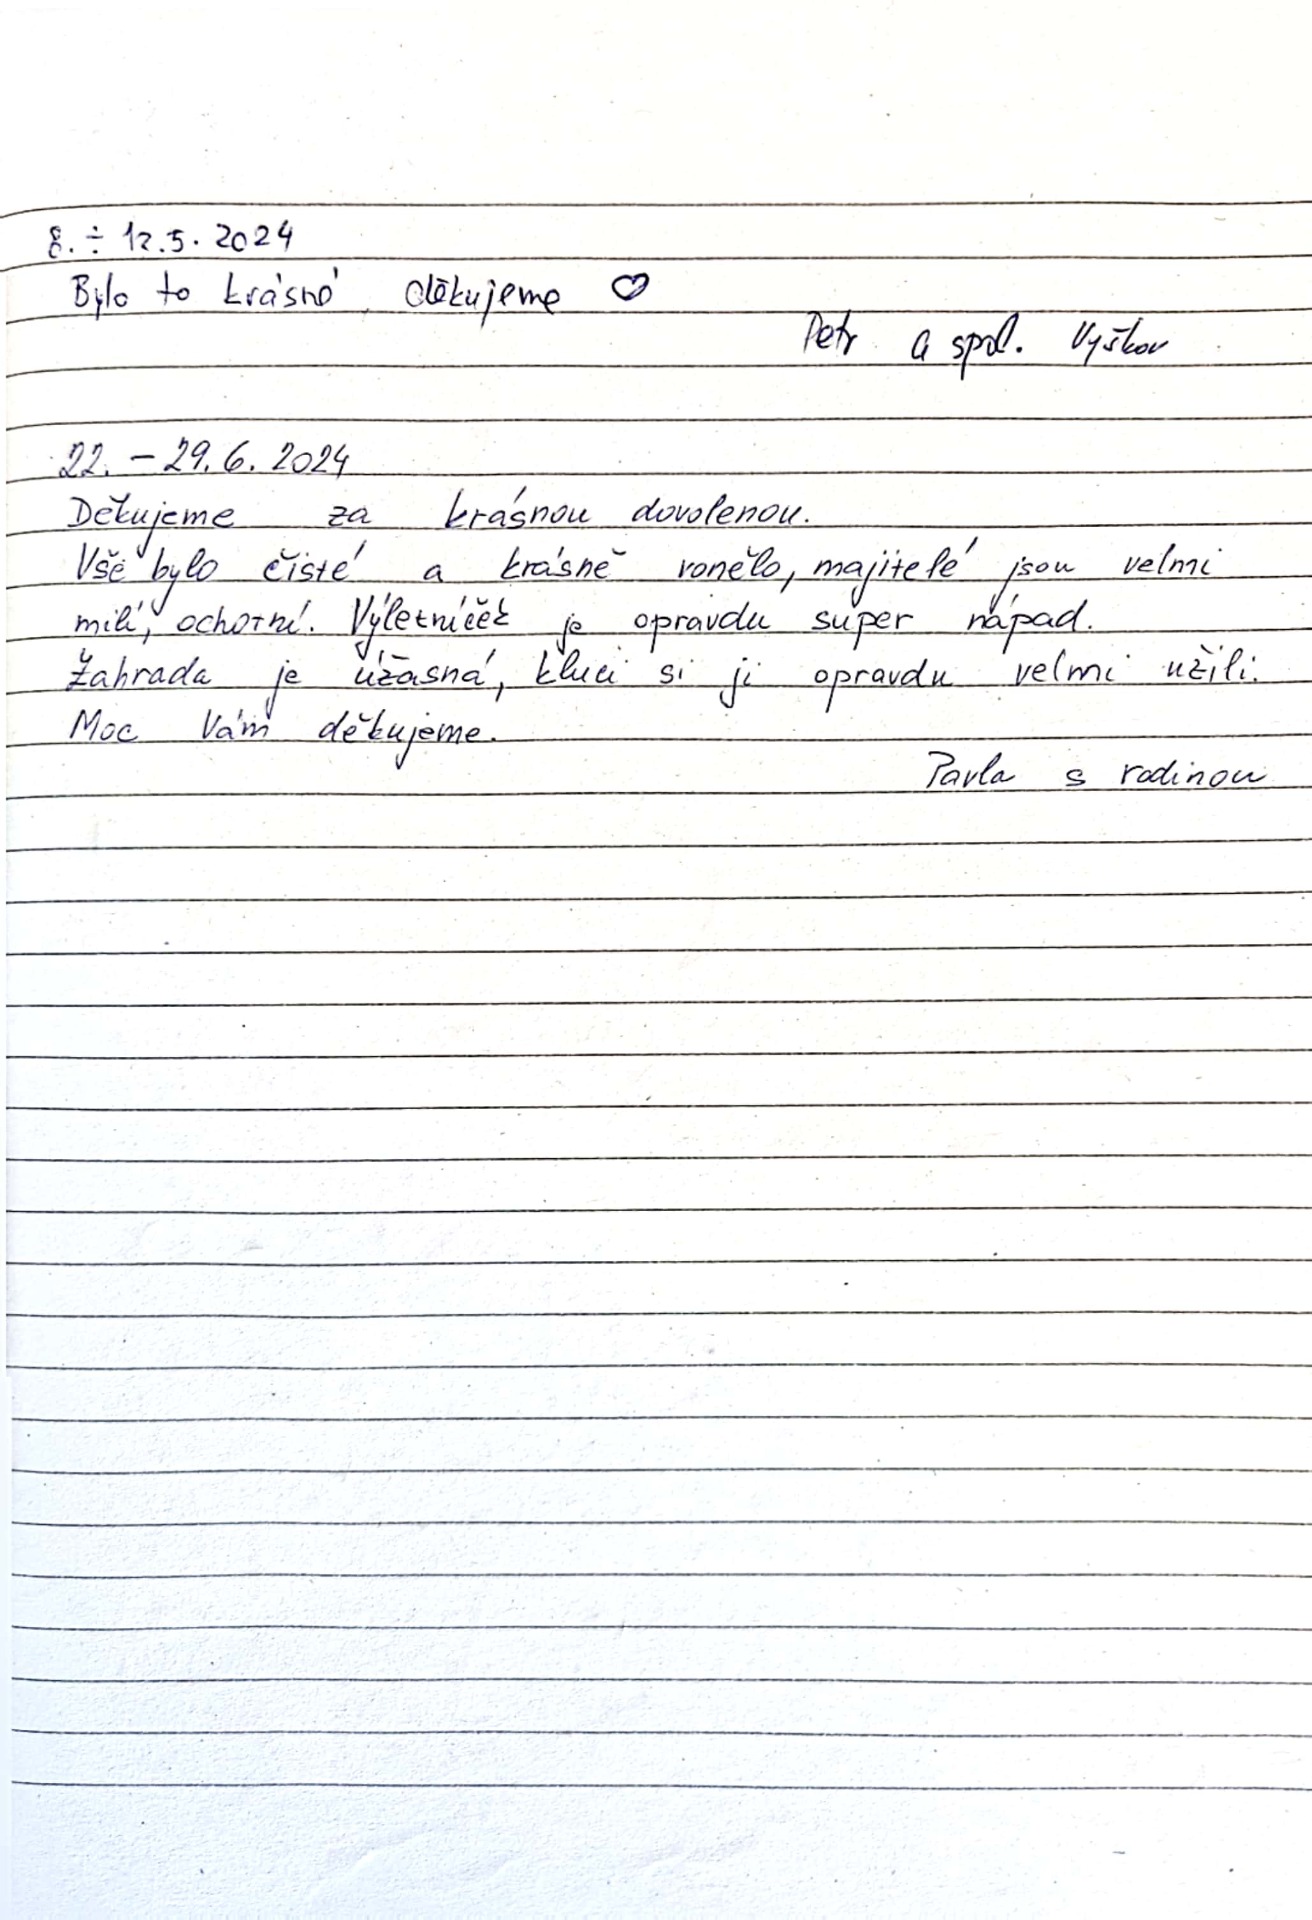 8. ÷ 12.5. 2024
Bylo to krásné, děkujeme ♡
Petr a spol. Vyškov
22. – 29. 6. 2024
Děkujeme za krásnou dovolenou.
Vše bylo čisté a krásně vonělo, majitelé jsou velmi
milí, ochotní. Výletníček je opravdu super nápad.
Zahrada je úžasná, kluci si ji opravdu velmi užili.
Moc Vám děkujeme.
Pavla s rodinou